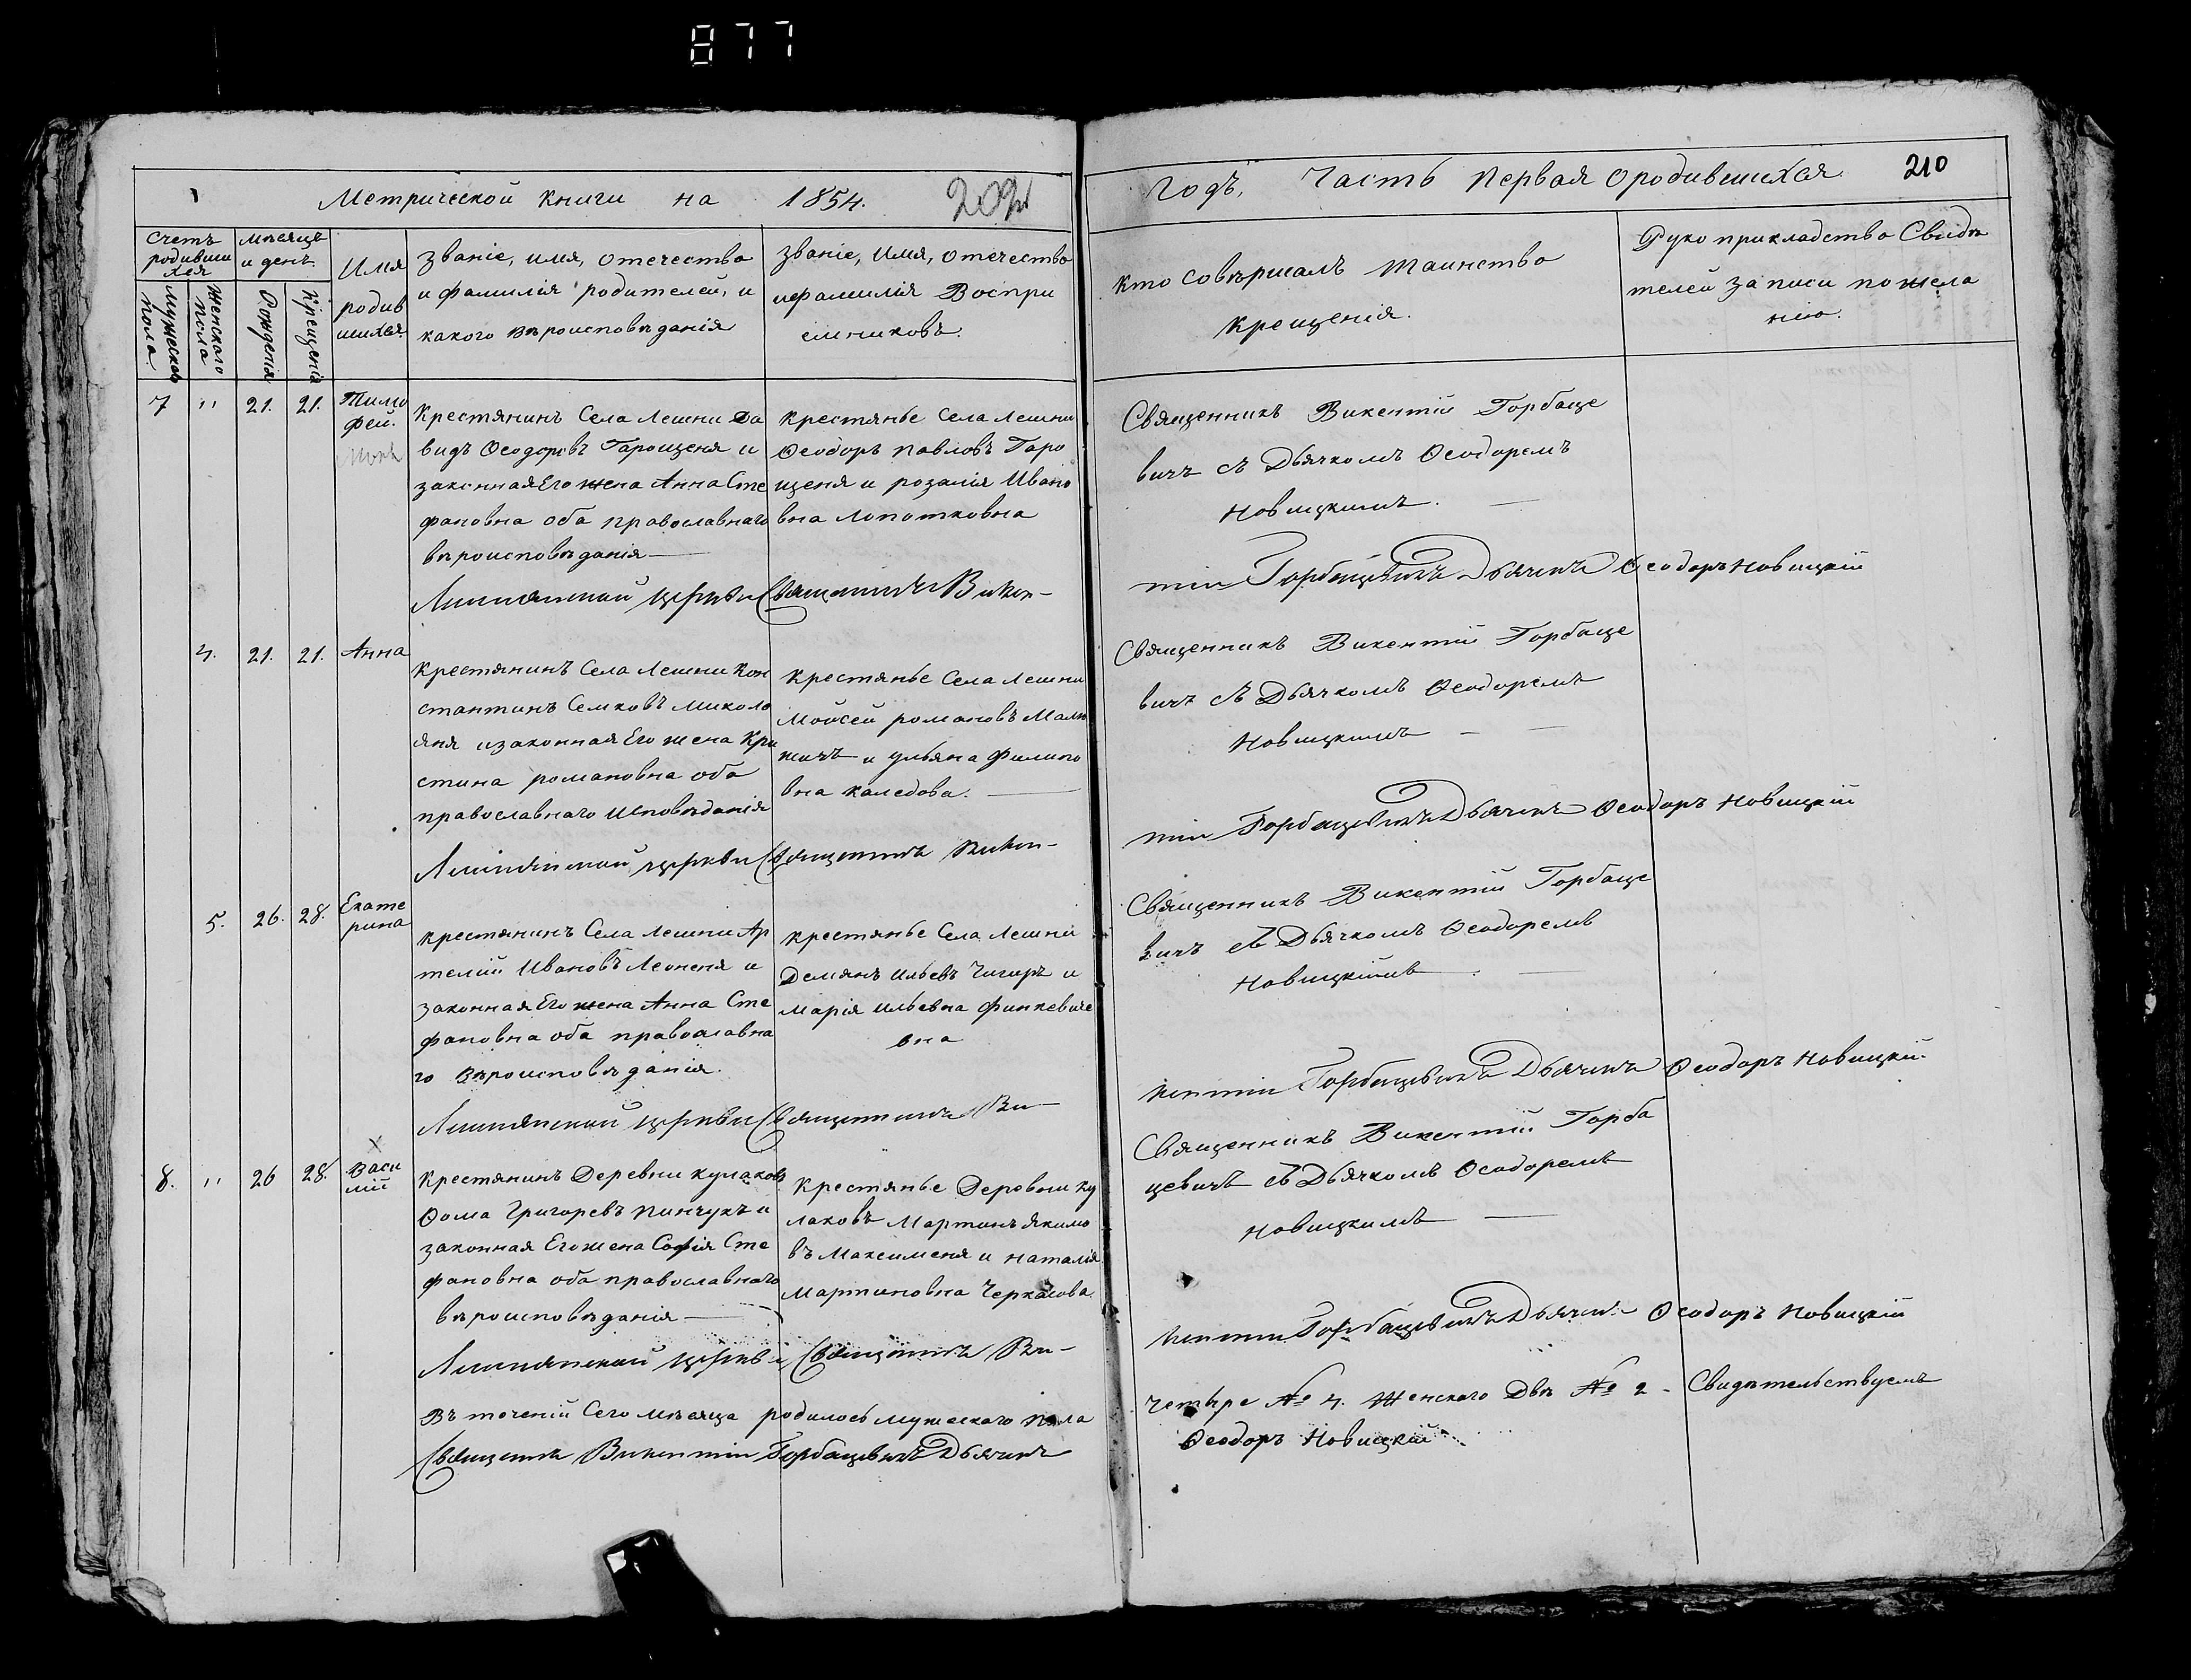 877
Метрической Книги на 1854.
Годъ, Часть Первая О родившихся. 210
Счетъ родивши хся
Мѣсяцъ и день.
Мужескаго пола.
Женскаго пола
Рожденія
Крещенія
Имя родив шихся.
Званіе, имя, отечество и фамилія родителей, и какого вѣроисповѣданія
Званіе, Имя, Отечество и фамилія Воспри емниковъ.
Кто совѣршалъ таинство Крещенія.
Рукоприкладство Свидѣ телей записи по жела нію.
7 " 21. 21. Тимо фей.
Крестянинъ Села Лешни Да
видъ Ѳеодоровъ Гарощеня и
законная Его жена Анна Сте
фановна оба православнаго
вѣроисповѣданія
Крестянье Села Лешни
Ѳеодоръ Павловъ Гаро
щеня и розалія Ивано
вна Лопотковна
Священникъ Викентій Горбаце
вичъ съ Дьячкомъ Ѳеодоромъ
Новицкимъ.
Лешнянской церкви Священникъ Викен-
тій Горбацевичъ Дьячекъ Ѳеодоръ Новицкій
4. 21. 21. Анна
Крестянинъ Села Лешни Кон
стантинъ Семковъ Миколо
яня и законная Его жена Кри
стина романовна оба
православнаго Исповѣданія
Крестянье Села Лешни
Мойсей романовъ Малю
жичъ и ульяна Филипо
вна каледова.
Священникъ Викентій Горбаце
вичъ съ Дьячкомъ Ѳеодоромъ
Новицкимъ
Лешнянской церкви Священникъ Викен-
тій Горбацевичъ Дьячекъ Ѳеодоръ Новицкій
5. 26. 28. Екате рина
Крестянинъ Села Лешни Ар
темій Ивановъ Леоненя и
законная Его жена Анна Сте
фановна оба православна
го вѣроисповѣданія.
Крестянье Села Лешни
Демянъ Ильевъ Чигиръ и
Марія Ильевна Финкевиче
вна
Священникъ Викентій Горбаце
вичъ съ Дьячкомъ Ѳеодоромъ
Новицкимъ
Лешнянской церкви Священникъ Ви-
кентій Горбацевичъ Дьячекъ Ѳеодоръ Новицкій.
8. " 26 28. Васи лій
Крестянинъ Деревни кулаковъ
Ѳома Григоревъ Пинчукъ и
законная Его жена Софія Сте
фановна оба православнаго
вѣроисповѣданія
Крестянье Деревни ку
лаковъ Мартинъ Якимо
въ Максименя и Наталія
Мартиновна Черкасова.
Священникъ Викентій Горба
цевичъ съ Дьячкомъ Ѳеодоромъ
Новицкимъ
Лешнянской церкви Священникъ Ви-
кентій Горбацевичъ Дьячекъ Ѳеодоръ Новицкій
Въ теченіи Сего мѣсяца родилось мужескаго пола
четыре № 4. Женскаго Двѣ № 2 - Свидѣтельствуемъ
Священникъ Викентій Горбацевичъ Дьячекъ
Ѳеодоръ Новицкій